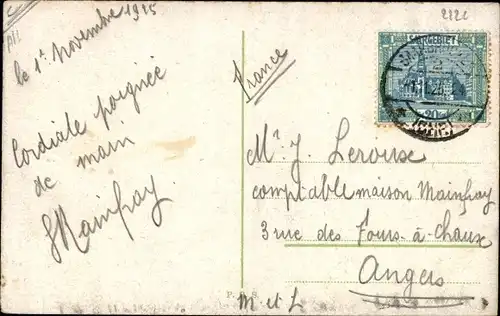 le 1er Novembre 1925
Cordiale poignée
de main
Mainfray.
France
2220
SAARGEBIET
20
Mr. J. Leroux
comptable maison Mainfray
3 rue des Fours-à-chaux
Angers
M et L